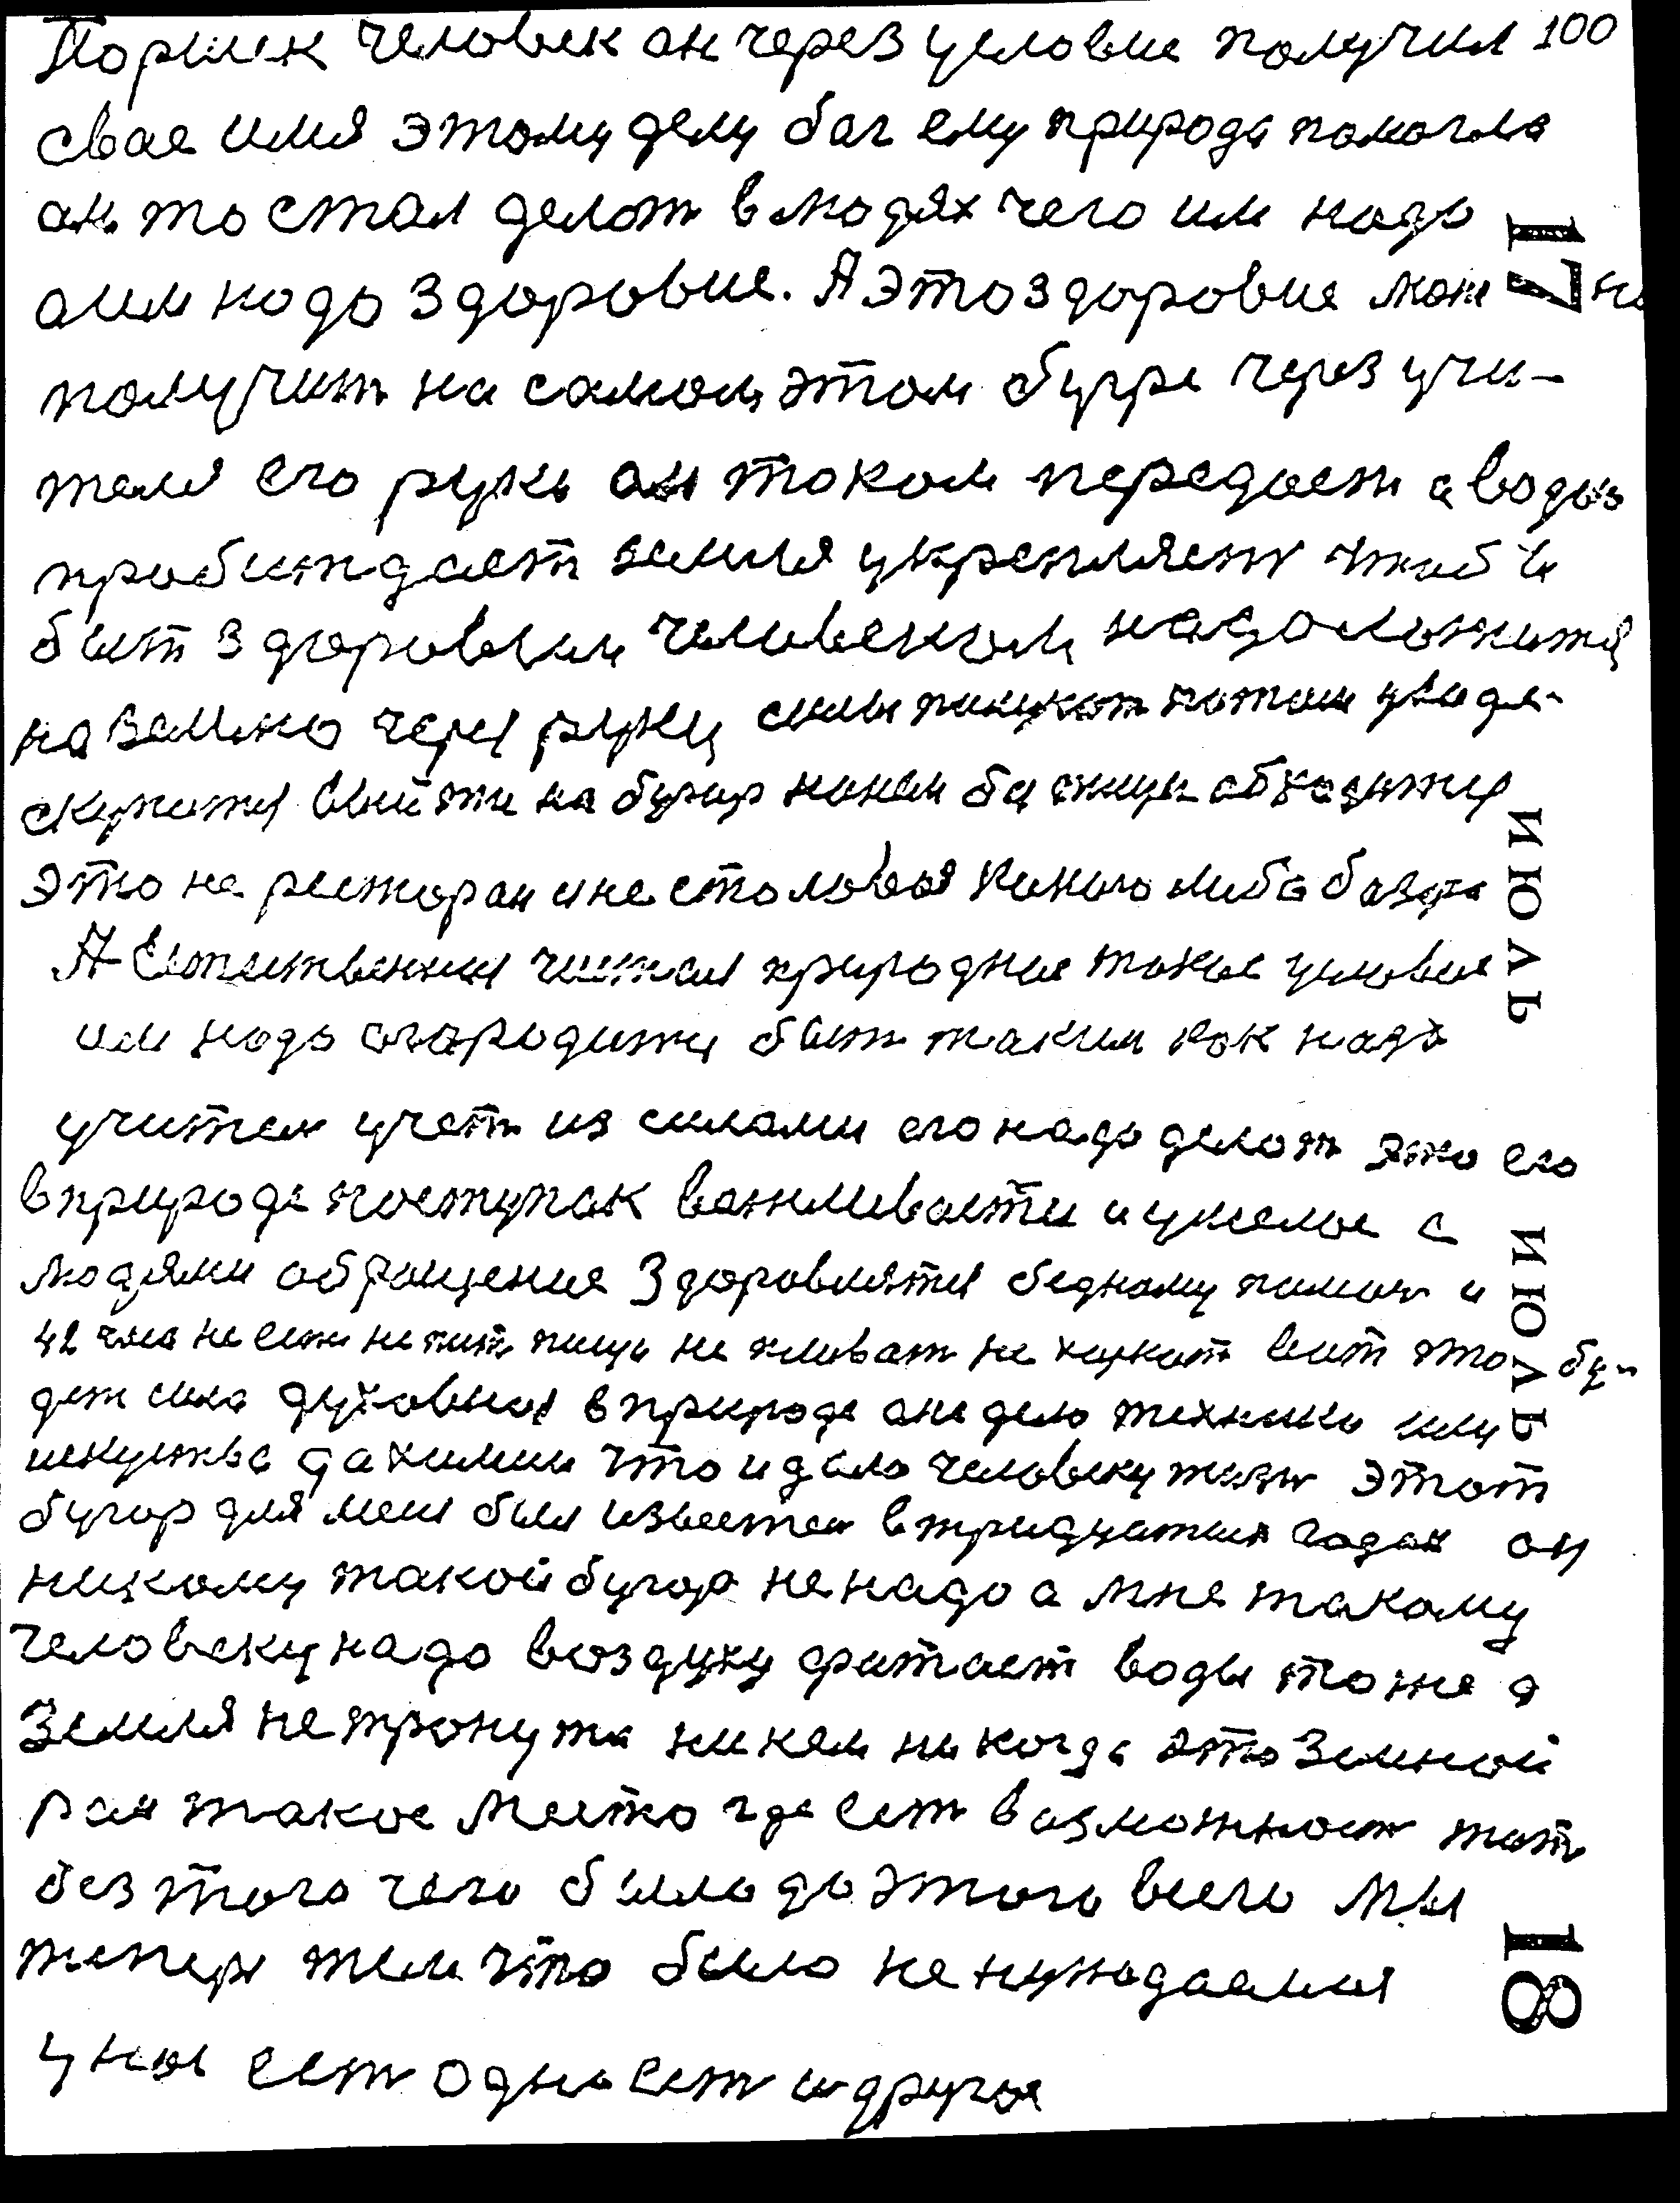 Поршек человек он через условие получил 100
свае имя этому делу бог ему природа помогла
он то стал делот в людях чего им надо
аим надо здоровие. А это здоровие можно
получит на самом этом бугре через учи-
теля его рукы он током передает а водоз
пробуждает земля укрепляет чтоб и
быт здоровым человеком надо ложится
на землю через руку силы потом
скупатся выйти на бугор обходится
это не ресторан и не столовоя какого либо базара
А естественная чистая природная такое условие
им надо огородится быт таким как надо
учител учет из силами его надо делот это его
в природе поступок вежливости и умелое с
людями обращения Здоровиятся бедному помоч и
42 часа не ест не пит пищи не плеват не харкат вот это бу-
дет сила духовная в природе а не дело техники или
искуства да химии что и дало человеку жизн этот
бугор для меня был известен в тридцатых годах он
никому такой бугор не надо а мне такому
человеку надо воздуху фатает воды тоже а
Земля не тронута никем никогда это земной
рай такое место где ест возможност жит
без того чего было до этого всего мы
тепер тем что было не нуждаемся
у нас ест одно ест и другое
17
ИЮЛЬ
ИЮЛЬ
18